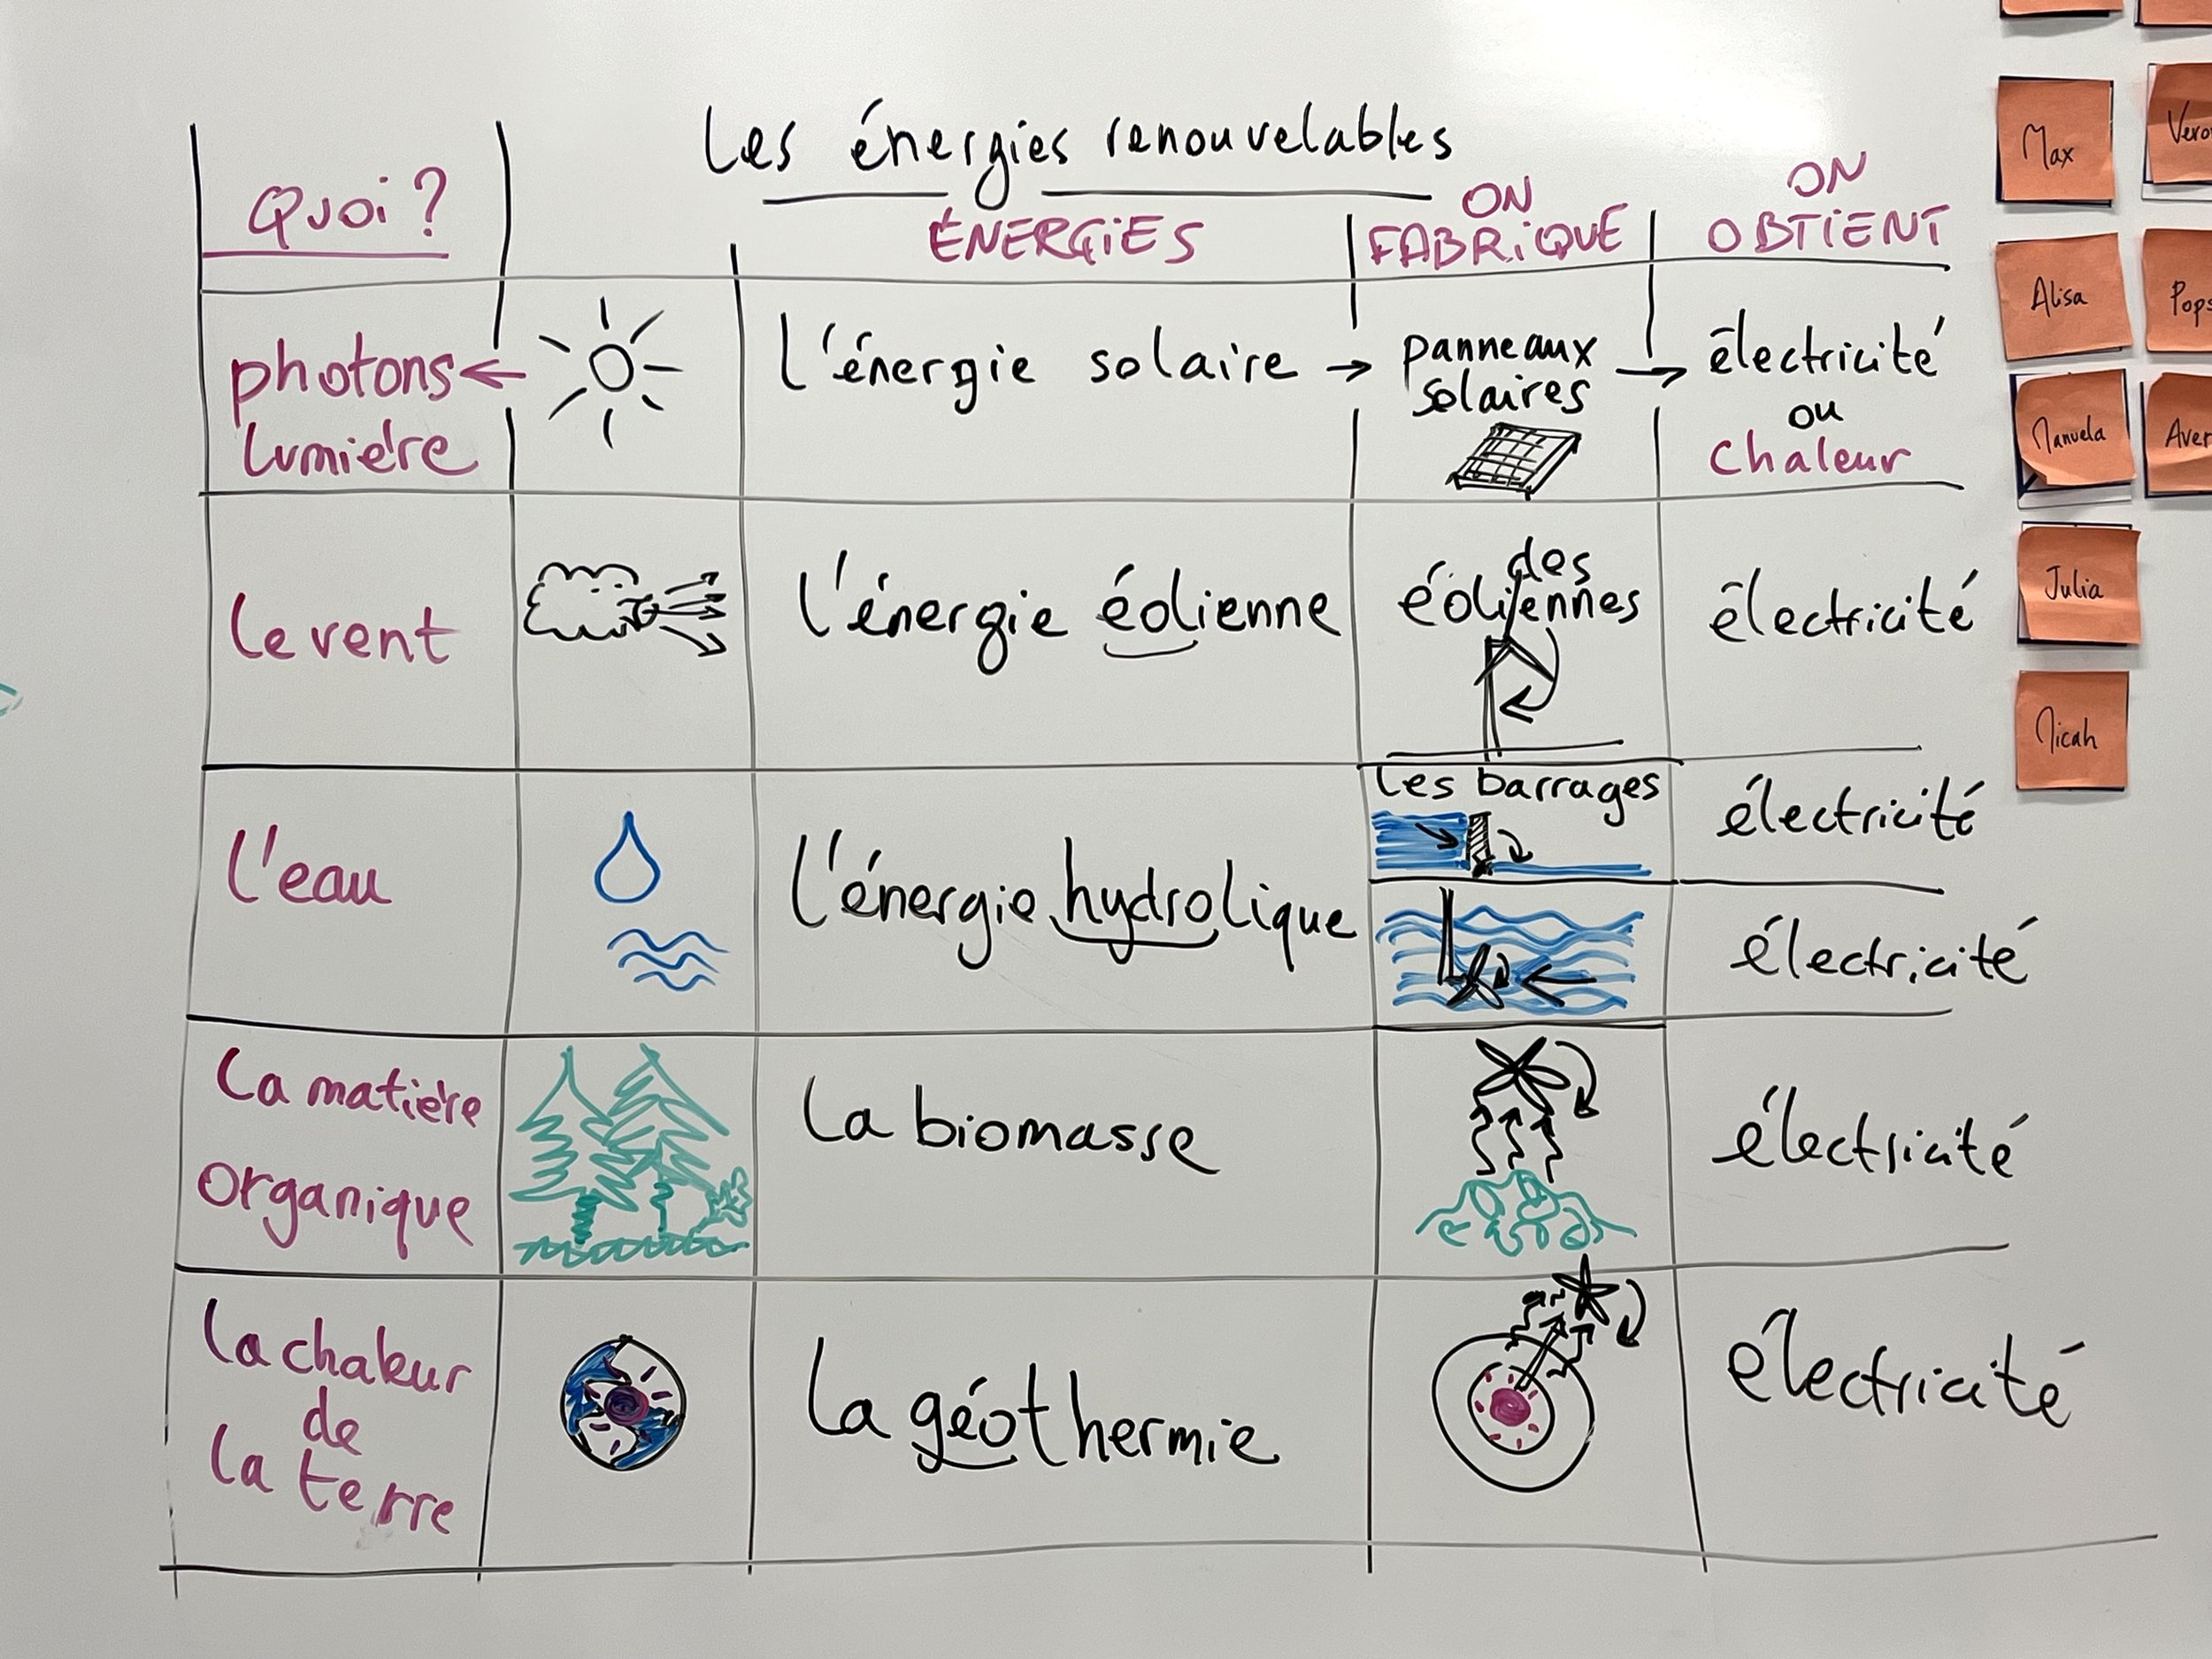 Les énergies renouvelables
Quoi ?
ÉNERGIES
ON
FABRIQUE
ON
OBTIENT
photons
lumière
l'énergie solaire
panneaux
solaires
électricité
ou
chaleur
le vent
l'énergie éolienne
des
éoliennes
électricité
l'eau
l'énergie hydrolique
les barrages
électricité
électricité
la matière
organique
la biomasse
électricité
la chaleur
de
la terre
la géothermie
électricité
Max
Alisa
Manuela
Julia
Micah
Vero
Pops
Aver